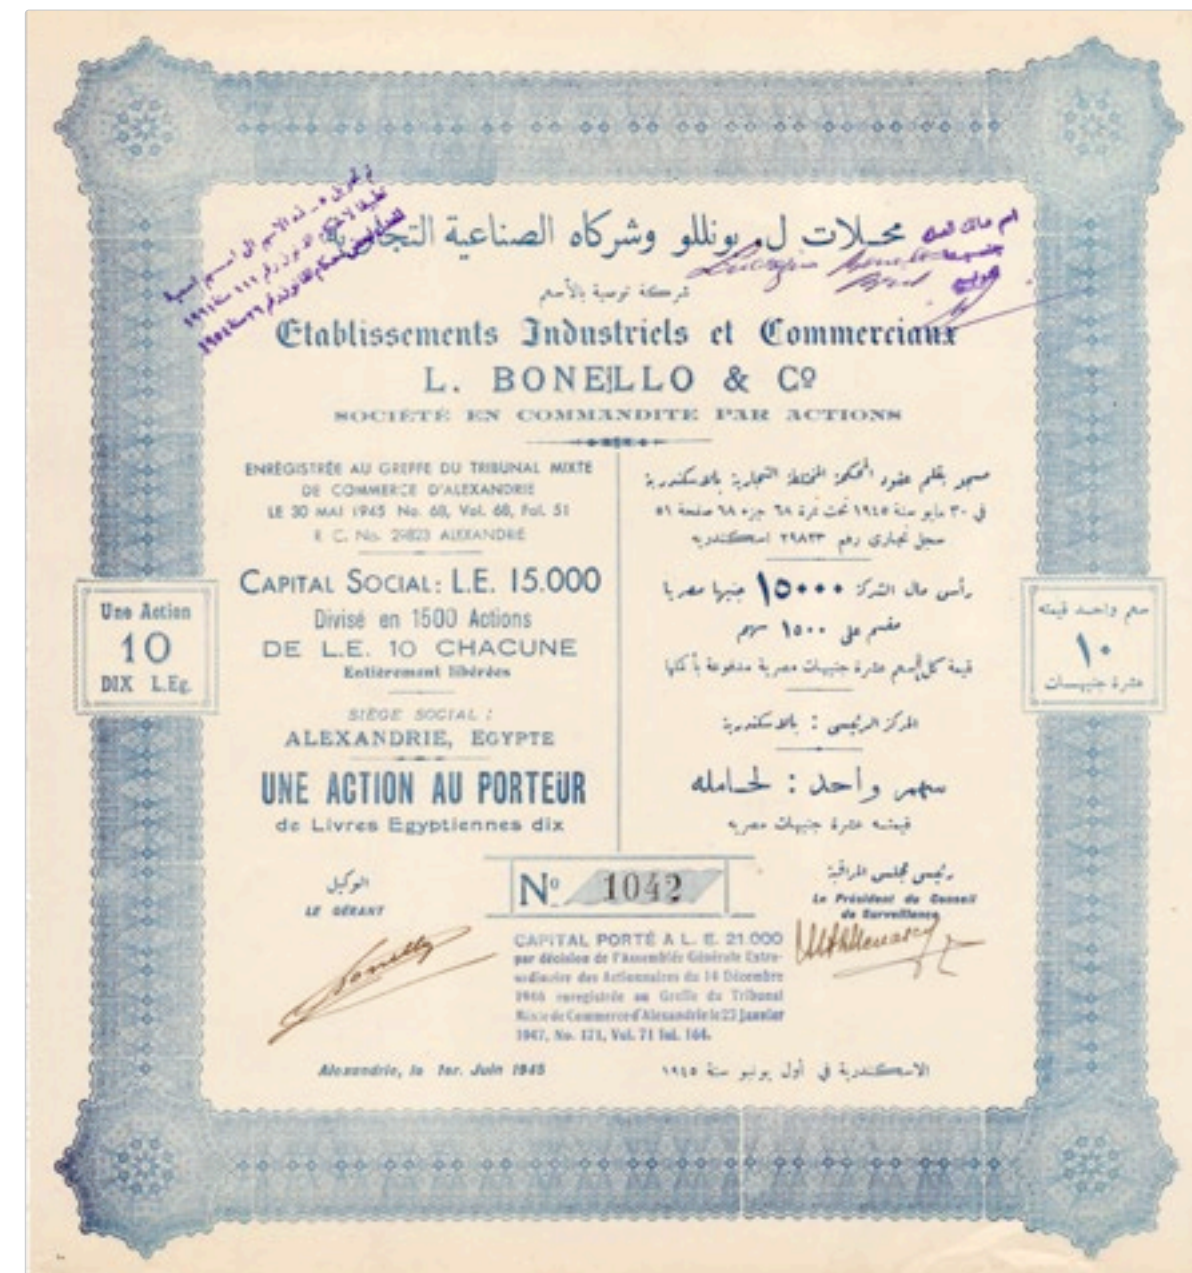 محلات ل. بونللو وشركاه الصناعية التجارية
شركة توصية بالأسهم
Etablissements Industriels et Commerciaux
L. BONELLO & Cº
SOCIÉTÉ EN COMMANDITE PAR ACTIONS
ENREGISTRÉE AU GREFFE DU TRIBUNAL MIXTE
DE COMMERCE D'ALEXANDRIE
LE 30 MAI 1945 No. 68, Vol. 68, Fol. 51
R. C. No. 29823 ALEXANDRIE
CAPITAL SOCIAL: L.E. 15.000
Divisé en 1500 Actions
DE L.E. 10 CHACUNE
Entièrement libérées
SIÈGE SOCIAL :
ALEXANDRIE, EGYPTE
UNE ACTION AU PORTEUR
de Livres Egyptiennes dix
مسجلة بقلم عقود المحكمة المختلطة التجارية بالاسكندرية
في ٣٠ مايو سنة ١٩٤٥ تحت نمرة ٦٨ جزء ٦٨ صفحة ٥١
سجل تجارى رقم ٢٩٨٢٣ اسكندريه
رأس مال الشركة ١٥٠٠٠ جنيها مصريا
مقسم على ١٥٠٠ سهم
قيمة كل سهم عشرة جنيهات مصرية مدفوعة بأكملها
المركز الرئيسى : بالاسكندرية
سهم واحد : لحامله
قيمته عشرة جنيهات مصريه
Une Action
10
DIX L.Eg.
سهم واحد قيمته
١٠
عشرة جنيهات
الوكيل
LE GÉRANT
Nº 1042
رئيس مجلس المراقبة
Le Président du Conseil
de Surveillance
CAPITAL PORTÉ A L. E. 21.000
par décision de l'Assemblée Générale Extra-
ordinaire des Actionnaires du 14 Décembre
1946 enregistrée au Greffe du Tribunal
Mixte de Commerce d'Alexandrie le 23 Janvier
1947, No. 121, Vol. 71 fol. 164.
Alexandrie, le 1er. Juin 1945
الاسكندرية في أول يونيو سنة ١٩٤٥